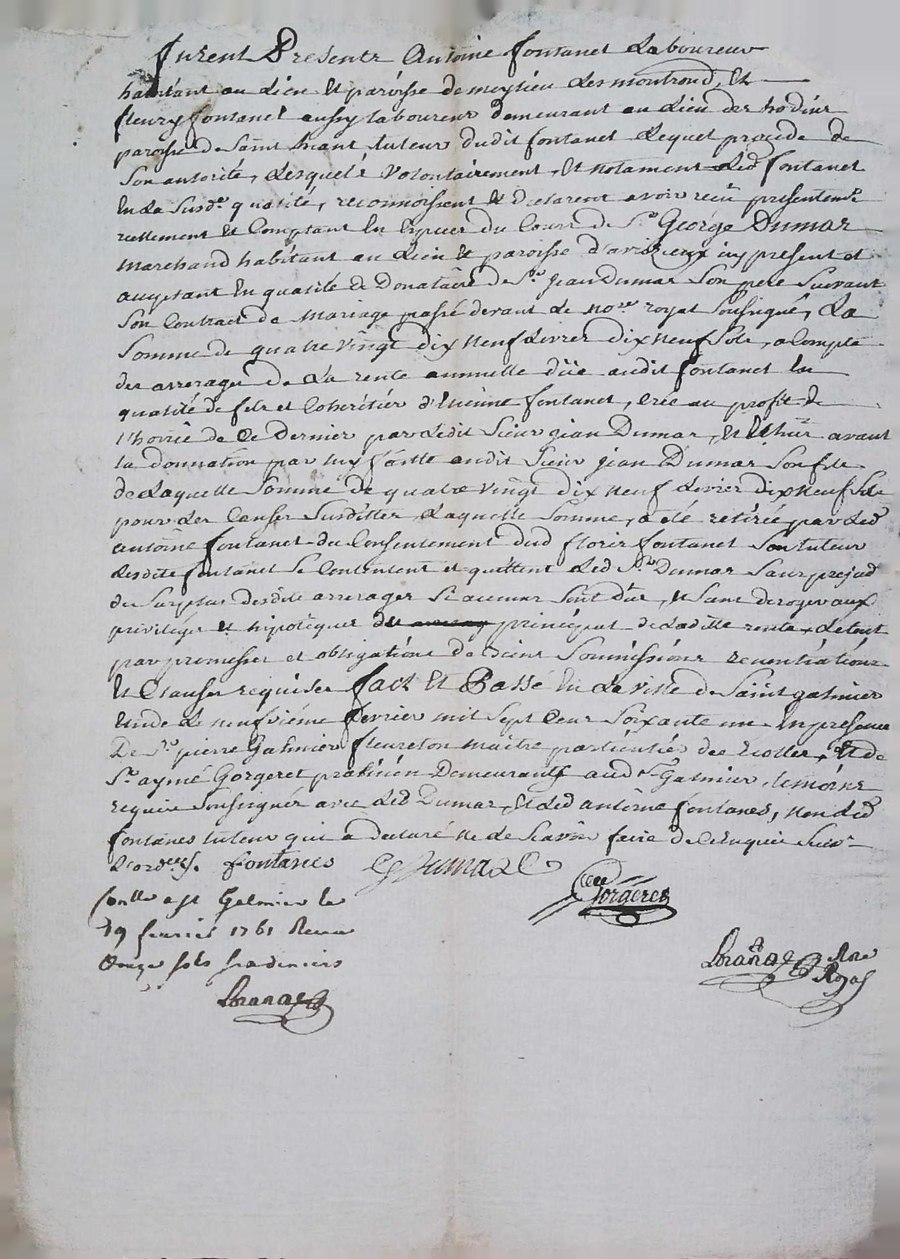 furent Presents Antoine fontanet Laboureur
habitant au Lieu et paroisse de meylieu Les montrond, Et
fleury fontanet aussy laboureur demeurant au Lieu des hodins
paroisse de Saint Tuteur dudit fontanet Lequel procede de
Son autorité, Lesquels volontairement, Et notament Led fontanet
En La Susd. qualité, reconnoissent et declarent avoir recu presentemt
réellement et Comptant En Especes du Cours de Sr. George Dumas
marchand habitant au Lieu et paroisse d' icy present et
acceptant En qualité de Donataire de Sr. jean Dumas Son pere Suivant
Son Contract de mariage passé devant Le Nore. royal Soussigné, La
Somme de quatre vingt dix neuf Livres dix neuf Sols, a Compte
des arrerages de La rente annuelle düe audit fontanet En
qualité de fils et Coheritier d'Etienne fontanet, Créé au profit de
L'hoirie de Ce dernier par Ledit Sieur jean Dumas, Et avant
la donnation par luy faitte audit Sieur jean Dumas Son fils
de Laquelle Somme de quatre vingt dix neuf Livres dix neuf Sols
pour Les Causes Susdittes, Laquelle Somme, a été retirée par Led
antoine fontanet du Consentement dud fontanet Son tuteur
Lesdits fontanet Se Contentent et quittent Led Sr. Dumas Sans prejud
du Surplus desdits arrerages Si aucuns Sont dus, et Sans deroger aux
privileges et hipoteques du principal de Laditte rente, Le tout
par promesses et obligations de biens Soumissions renontiations
Et Clauses requises fait Et Passé En La ville de Saint galmier
Etude Le neufvième fevrier mil Sept Cens Soixante un En presence
De Sr. pierre Galmier fleureton maitre des Ecolles, Et de
Sr. aymé Gorgeret praticien Demeurants aud St. Galmier, temoins
requis Soussignés avec Led Dumas, Et Led antoine fontanes, non Led
fontanes tuteur qui a declaré ne Scavoir faire de Ce Enquis Suivt.
L'orde. fontanes Dumas
Gorgeret
Conlle a St Galmier le
19 fevrier 1761 Receu
Onze sols
Nore
Royal